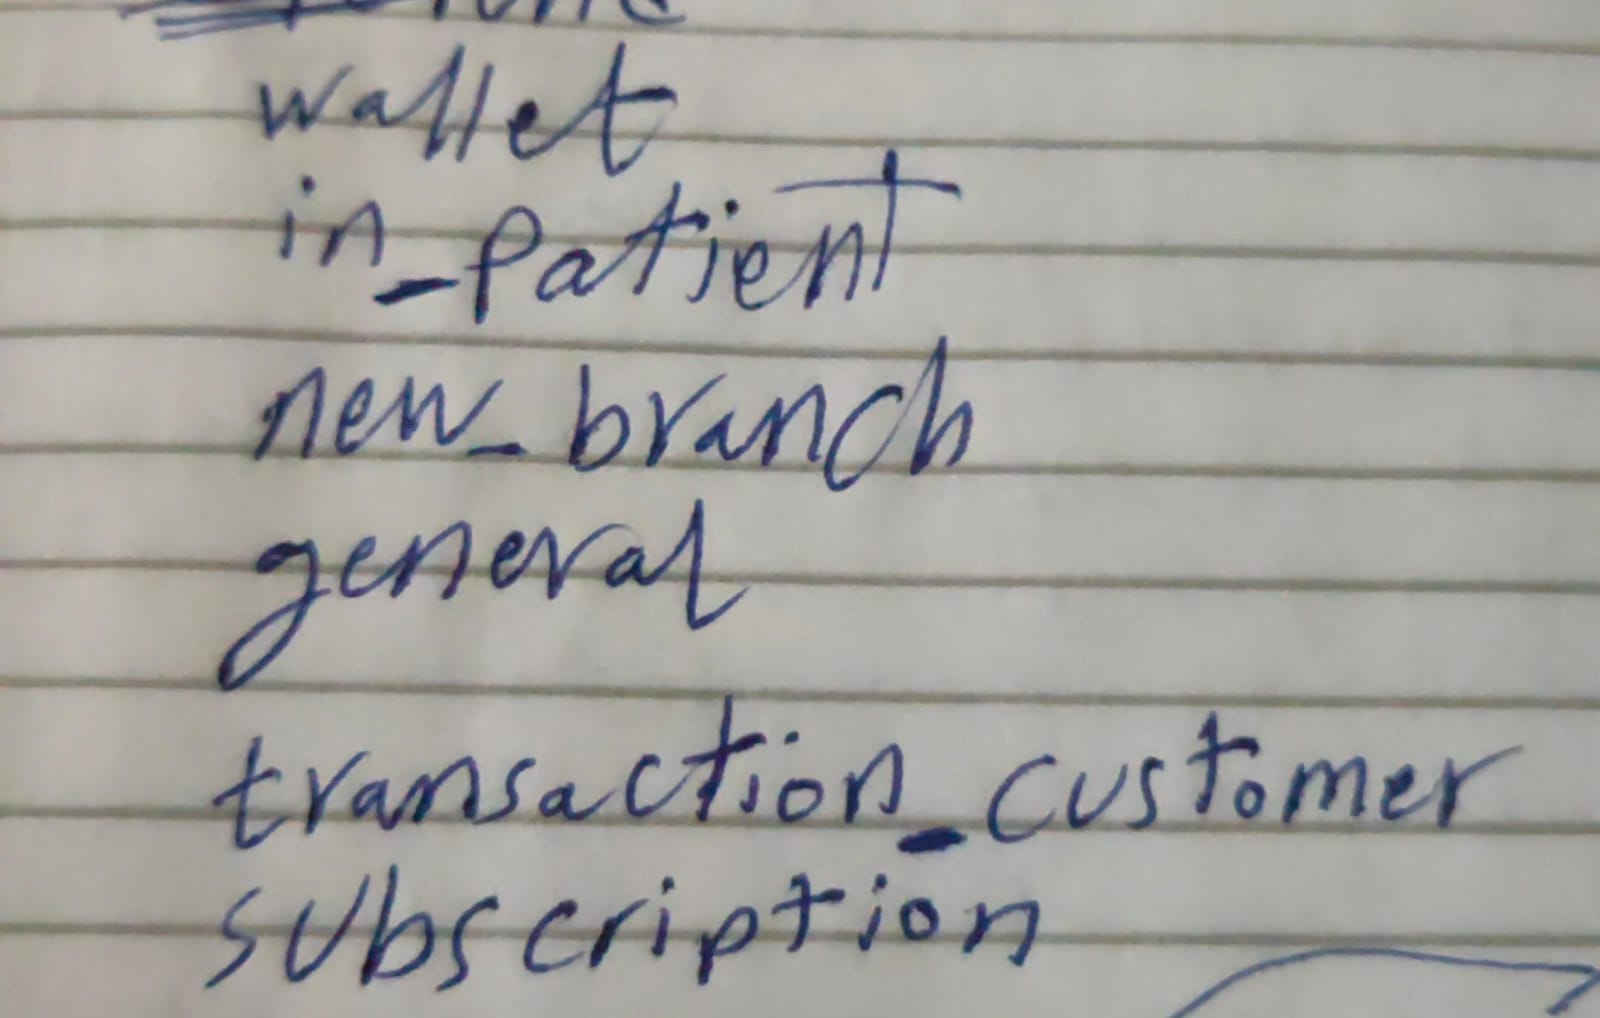 wallet
in_patient
new_branch
general
transaction_customer
subscription